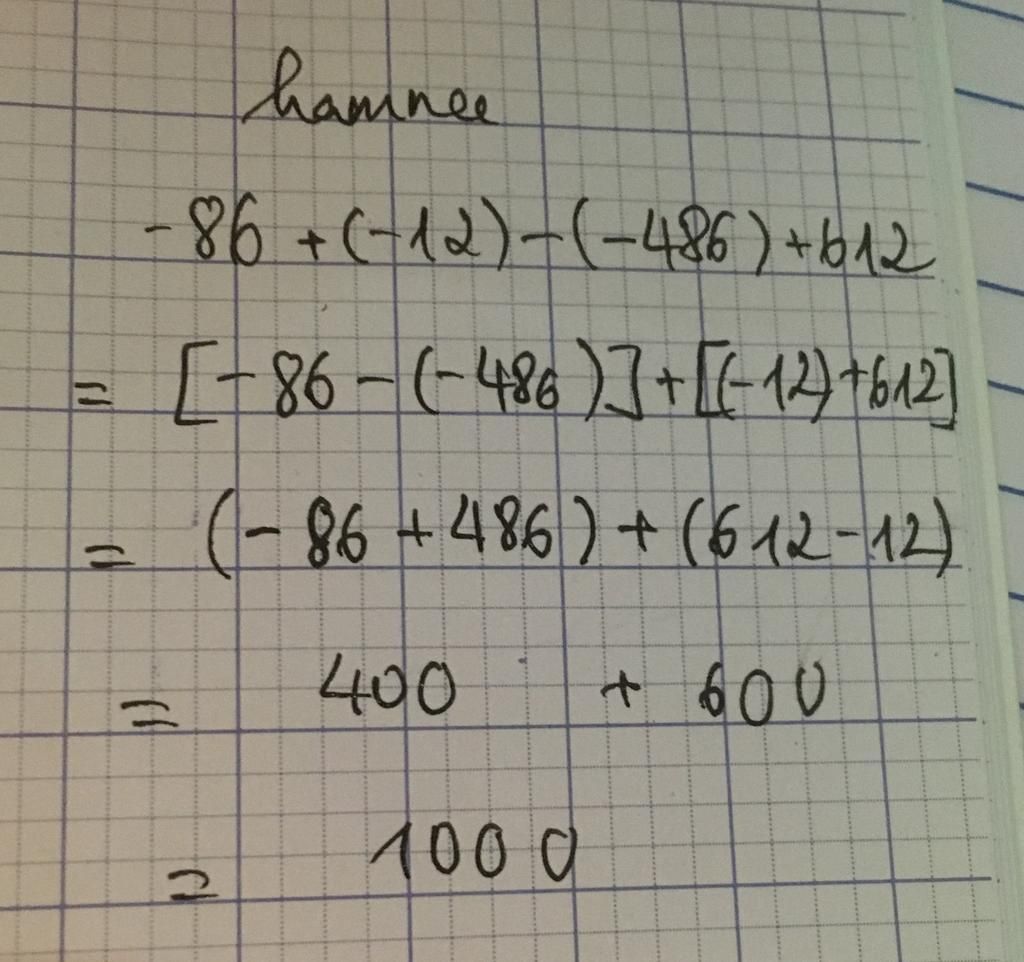 hamnee
-86 + (-12) - (-486) + 612
= [-86 - (-486)] + [(-12) + 612]
= (-86 + 486) + (612 - 12)
= 400 + 600
= 1000